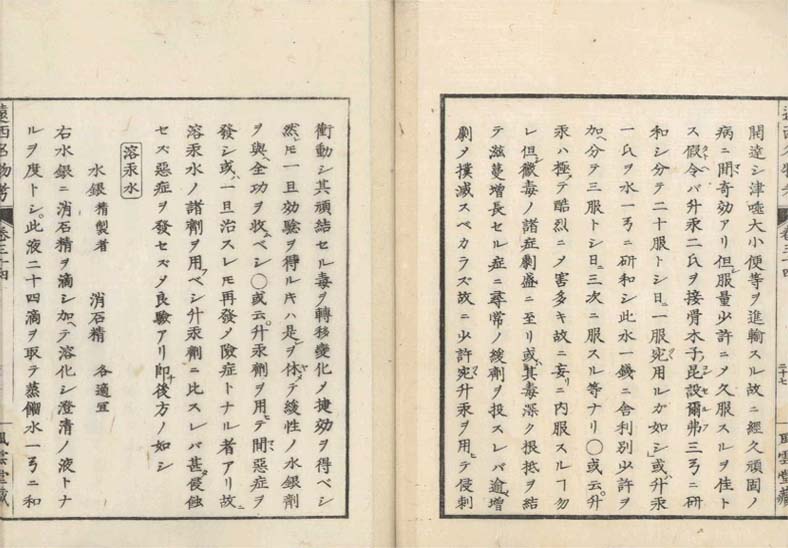 開達シ津唾大小便等ヲ進輸スル故ニ經久頑固ノ
病ニ間奇効アリ但服量少許ニメ久服スルヲ佳ト
ス假令バ升汞二氏ヲ接骨木子昆設爾弗三ヲニ研
和シ分テ二十服トシ日ニ一服宛用ルガ如シ或ハ升汞
一氏ヲ水一ヲニ研和シ此水一錢ニ舎利別少許ヲ
加ヘ分テ三服トシ日ニ三次ニ服スル等ナリ○或云升
汞ハ極テ酷烈ニメ害多キ故ニ妄リニ内服スルヿ勿
レ但黴毒ノ諸症劇盛ニ至リ或ハ其毒深ク根抵ヲ結
テ滋蔓増長セル症ニ尋常ノ緩劑ヲ投スレバ逾増
劇メ撲滅スベカラズ故ニ少許宛升汞ヲ用テ侵刺
遠西名物考
卷三十四
三十七
風雲堂藏
衝動シ其頑結セル毒ヲ轉移變化メ捷効ヲ得ベシ
然ドモ一旦効驗ヲ得ルキハ是ヲ休テ緩性ノ水銀劑
ヲ與ヘ全功ヲ收ベシ○或云升汞劑ヲ用テ間惡症ヲ
發シ或ハ一旦治スレドモ再發メ險症トナル者アリ故ニ
溶汞水ノ諸劑ヲ用ベシ升汞劑ニ比スレバ甚侵蝕
セズ惡症ヲ發セズメ良驗アリ即後方ノ如シ
溶汞水
水銀精製者 消石精 各適宜
右水銀ニ消石精ヲ滴シ加ヘテ溶化シ澄清ノ液トナ
ルヲ度トシ此液二十四滴ヲ取テ蒸餾水一ヲニ和
遠西名物考
卷三十四
風雲堂藏